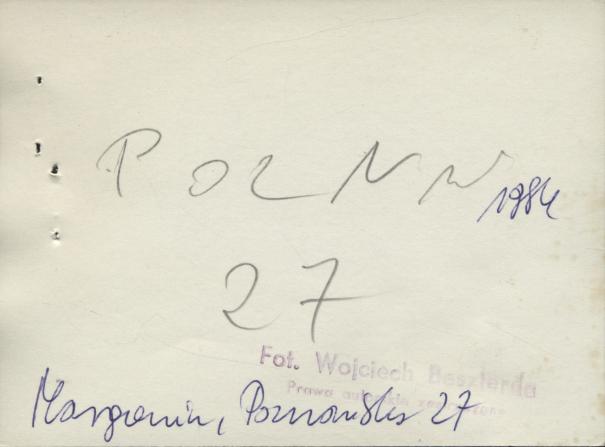 POZN
1984
27
Fot. Wojciech Beszterda
Prawa autorskie zastrzeżone
Margonin, Poznańska 27